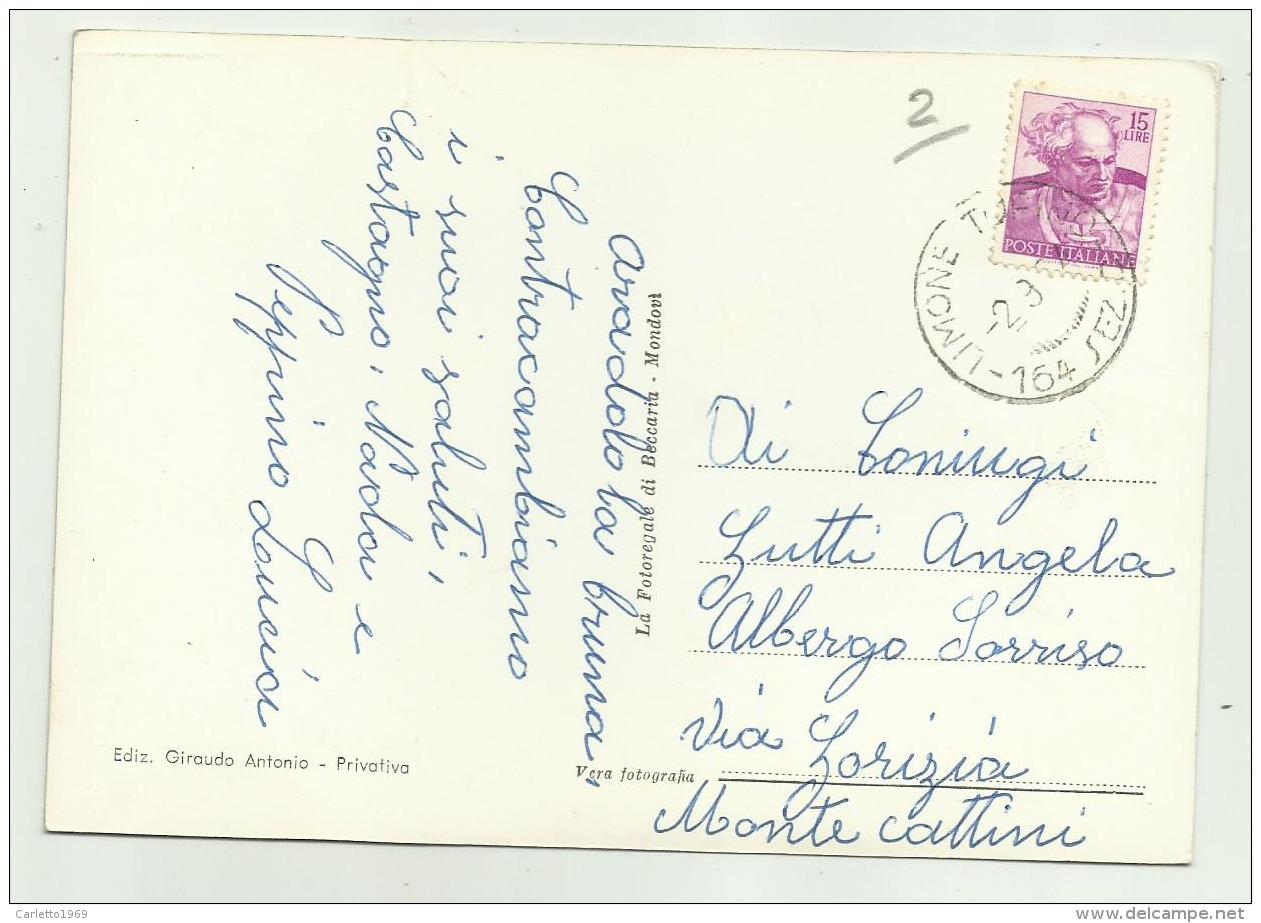 avadola bruna,
Contracambiamo
i suoi saluti,
Castagno: Nada e
G.
Peppino Lucia
Ediz. Giraudo Antonio - Privativa
La Fotoregale di Beccaria - Mondovì
Vera fotografia
2
15
LIRE
POSTE ITALIANE
LIMONE
-2.9
-164 SEZ.
Ai Coniugi
Lutti Angela
Albergo Sorriso
Via Gorizia
Monte cattini
Carletto1969
www.delcampe.net